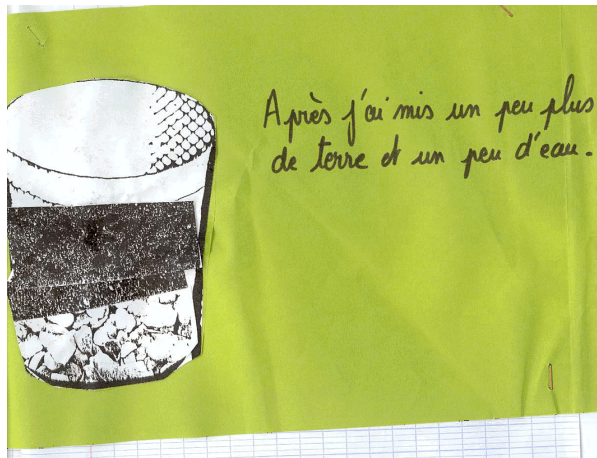 Après j'ai mis un peu plus
de terre et un peu d'eau.